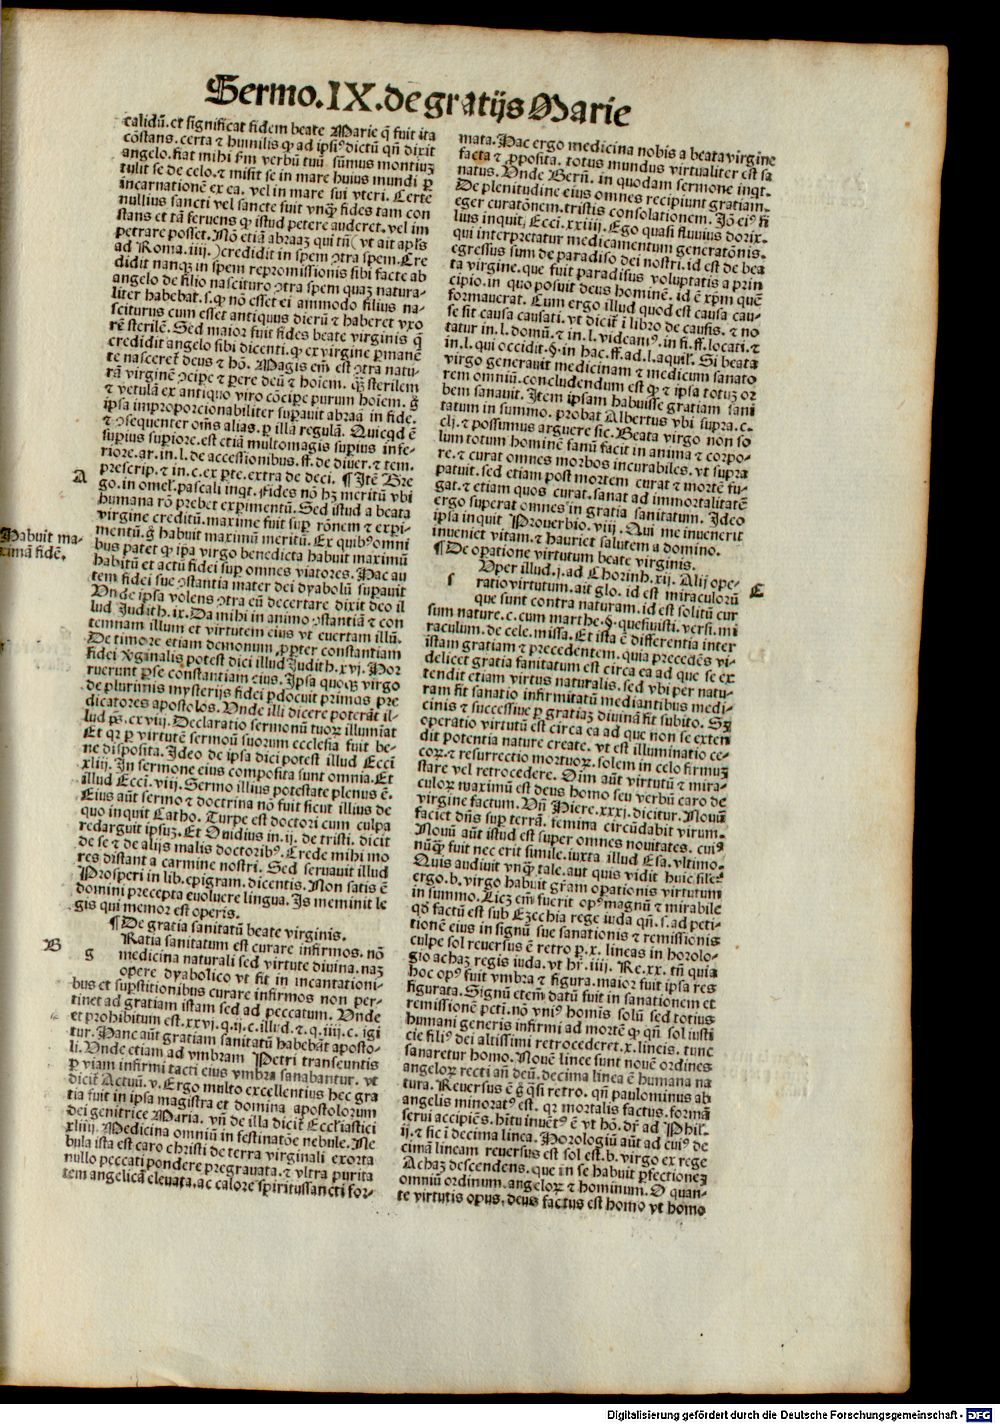 Sermo.IX.de gratijs Marie
calidū.et significat fidem beate Marie q̄ fuit ita
cōstans.certa ⁊ humilis ꝙ ad ipsiꝰ dictū qn̄ dixit
angelo.fiat mihi s̄m verbū tuū sūmus montiuꝫ
tulit se de celo.⁊ misit se in mare huius mundi ꝑ
incarnationē ex ea.vel in mare sui vteri. Certe
nullius sancti vel sancte fuit vnqꝫ fides tam con
stans et tā feruens ꝙ istud petere auderet.vel im
petrare posset. Nō etiā abraaꝫ qui tn̄ (vt ait apl̄s
ad Roma.iiij.) credidit in spem ꝯtra spem. Cre
didit nanqꝫ in spem repromissionis sibi facte ab
angelo de filio nascituro ꝯtra spem quaꝫ natura-
liter habebat.s.ꝙ nō esset ei ammodo filius na-
sciturus cum esset antiquus dierū ⁊ haberet vxo
rē sterilē. Sed maior fuit fides beate virginis q̄
credidit angelo sibi dicenti.ꝙ ex virgine ꝑmanē
te nasceret̄ deus ⁊ hō. Magis em̄ est ꝯtra natu-
rā virginē ꝯcipe ⁊ ꝑere deū ⁊ hoīem. qꝫ̄ sterilem
⁊ vetulā ex antiquo viro cōcipe purum hoīem. g̊
ipsa improporcionabiliter suꝑauit abraā in fide.
⁊ ꝯsequenter om̄s alias.ꝑ illa regulā. Quicqd̄ ē
suꝑius suꝑiore.est etiā multomagis suꝑius infe-
riore.ar.in.l.de accessionibus.ff.de diuer.⁊ tem.
prescrip.⁊ in.c.ex ꝑte.extra de deci. ¶Itē Gre
A
go.in omel̄.pascali inqt. Fides nō hꝫ meritū vbi
humana rō prebet exꝑimentū. Sed istud a beata
virgine creditū.maxime fuit suꝑ rōnem ⁊ exꝑi-
Habuit ma-
ximā fidē.
mentū.g̊ habuit maximū meritū. Ex quibꝰ omni
bus patet ꝙ ipa virgo benedicta habuit maximū
habitū et actū fidei suꝑ omnes viatores. Hac au
tem fidei sue ꝯstantia mater dei dyabolū suꝑauit
Vnde ipsa volens ꝯtra eū decertare dixit deo il
lud Judith.ix.Da mihi in animo ꝯstantiā ⁊ con
temnam illum et virtutem eius vt euertam illū.
De timore etiam demonum ꝓpter constantiam
fidei v̓ginalis potest dici illud Judith.xvj. Hor
ruerunt ꝑse constantiam eius. Ipsa quoqꝫ virgo
de plurimis mysterijs fidei ꝑdocuit primas pre
dicatores apostolos. Vnde illi dicere poterāt il-
lud ps̄.cxviij. Declaratio sermonū tuoꝝ illumīat
Et qꝛ ꝑ virtutē sermoū suorum ecclesia fuit be-
ne disposita. Ideo de ipsa dici potest illud Ecci̅
xliij. In sermone eius composita sunt omnia. Et
illud Ecci̅.viij. Sermo illius potestate plenus ē.
Eius aūt sermo ⁊ doctrina nō fuit sicut illius de
quo inquit Catho. Turpe est doctori cum culpa
redarguit ipsuꝫ. Et Ouidius in.ij. de tristi. dicit
de se ⁊ de alijs malis doctoribꝰ. Crede mihi mo
res distant a carmine nostri. Sed seruauit illud
Prosperi in lib.epigram.dicentis. Non satis ē
domini precepta euoluere lingua. Is meminit le
gis qui memor est operis.
¶De gratia sanitatū beate virginis.
B
g Ratia sanitatum est curare infirmos. nō
medicina naturali sed virtute diuina. naꝫ
opere dyabolico vt fit in incantationi-
bus et suꝑstitionibus curare infirmos non per-
tinet ad gratiam istam sed ad peccatum. Vnde
et prohibitum est.xxvj.q.ij.c.illud.⁊.q.iiij.c.igi
tur. Hanc aūt gratiam sanitatū habebāt aposto-
li. Vnde etiam ad vmbram Petri transeuntis
ꝑ viam infirmi tacti eius vmbra sanabantur. vt
dicit̄ Actuū.v. Ergo multo excellentius hec gra
tia fuit in ipsa magistra et domina apostolorum
dei genitrice Maria. vn̄ de illa dicit̄ Eccl̄iastici
xliiij. Medicina omniū in festinatōe nebule. Ne
bula ista est caro christi de terra virginali exorta
nullo peccati pondere pregrauata.⁊ vltra purita
tem angelicā eleuata.ac calore spiritussancti for-
mata. Hac ergo medicina nobis a beata virgine
facta ⁊ ꝓposita. totus mundus virtualiter est sa
natus. Vnde Bern̄. in quodam sermone inqt.
De plenitudine eius omnes recipiunt gratiam.
eger curatōnem.tristis consolationem. Jō ei̅ꝰ fi
lius inquit. Ecci.xxiiij. Ego quasi fluuius dorix.
qui interpretatur medicamentum generatōnis.
egressus sum de paradiso dei nostri.id est de bea
ta virgine.que fuit paradisus voluptatis a prin
cipio.in quo posuit deus hominē.id ē xp̄m quē
formauerat. Cum ergo illud quod est causa cau-
se sit causa causati. vt dicit̄ ī libro de causis. ⁊ no
tatur in.l.domū.⁊ in.l.videamꝰ.in fi.ff.locati.⁊
in.l.qui occidit.§.in hac.ff.ad.l.aquil̄. Si beata
virgo generauit medicinam ⁊ medicum sanato
rem omniū.concludendum est ꝙ ⁊ ipsa totuꝫ or
bem sanauit. Item ipsam habuisse gratiam sani
tatum in summo. probat Albertus vbi supra.c.
clj.⁊ possumus arguere sic. Beata virgo non so
lum totum hominē sanū facit in anima ⁊ corpo-
re.⁊ curat omnes morbos incurabiles.vt supra
patuit.sed etiam post mortem curat ⁊ mortē fu-
gat.⁊ etiam quos curat.sanat ad immortalitatē
ergo superat omnes in gratia sanitatum. Ideo
ipsa inquit Prouerbio.viij. Qui me inuenerit
inueniet vitam.⁊ hauriet salutem a domino.
¶De oꝑatione virtutum beate virginis.
C
s Vper illud.j.ad Chorinh.xij. Alij ope-
ratio virtutum.ait glo. id est miraculorū
que sunt contra naturam.id est solitū cur
sum nature.c.cum marthe.§.quesiuisti.versi.mi
raculum.de cele.missa. Et ista ē differentia inter
istam gratiam ⁊ precedentem.quia precedēs vi-
delicet gratia sanitatum est circa ea ad que se ex
tendit etiam virtus naturalis.sed vbi per natu-
ram fit sanatio infirmitatū mediantibus medi-
cinis ⁊ successiue ꝑ gratiaꝫ diuinā fit subito. Sꝫ
operatio virtutū est circa ea ad que non se exten
dit potentia nature create. vt est illuminatio ce-
coꝝ.⁊ resurrectio mortuoꝝ.solem in celo firmuꝫ
stare vel retrocedere. Oīm aūt virtutū ⁊ mira-
culoꝝ maximū est deus homo seu verbū caro de
virgine factum. Vn̄ Hiere.xxxj.dicitur. Nouū
faciet dn̄s suꝑ terrā. femina circūdabit virum.
Nouū aūt istud est super omnes nouitates. cuiꝰ
nūqꝫ fuit nec erit simile.iuxta illud Esa.vltimo.
Quis audiuit vnqꝫ tale.aut quis vidit huic sile̅?
ergo.b.virgo habuit gr̄am oꝑationis virtutum
in summo. Licꝫ em̄ fuerit opꝰ magnū ⁊ mirabile
qd̄ factū est sub Ezechia rege iuda qn̄.s.ad peti-
tionē eius in signū sue sanationis ⁊ remissionis
culpe sol reuersus ē retro ꝑ.x.lineas in horolo-
gio achaꝫ regis iuda.vt hr̄.iiij. Re.xx. tn̄ quia
hoc opꝰ fuit vmbra ⁊ figura.maior fuit ipsa res
figurata. Signū etem̄ datū fuit in sanationem et
remissionē pctī.nō vniꝰ homīs solū sed totius
humani generis infirmi ad mortē ꝙ qn̄ sol iusti
cie filiꝰ dei altissimi retrocederet.x.lineis. tunc
sanaretur homo. Nouē linee sunt nouē ordines
angeloꝝ recti an̄ deū.decima linea ē humana na
tura. Reuersus ē g̊ q̄si retro. qn̄ paulominus ab
angelis minoratꝰ est. qꝛ mortalis factus.formā
serui accipiēs.hītu inuētꝰ ē vt hō. dr̄ ad Phil̄.
ij.⁊ sic ī decima linea. Horologiū aūt ad cuiꝰ de
cimā lineam reuersus est sol est.b.virgo ex rege
Achaꝫ descendens.que in se habuit ꝑfectioneꝫ
omniū ordinum.angeloꝝ ⁊ hominum. O quan-
te virtutis opus.deus factus est homo vt homo
Digitalisierung gefördert durch die Deutsche Forschungsgemeinschaft - DFG